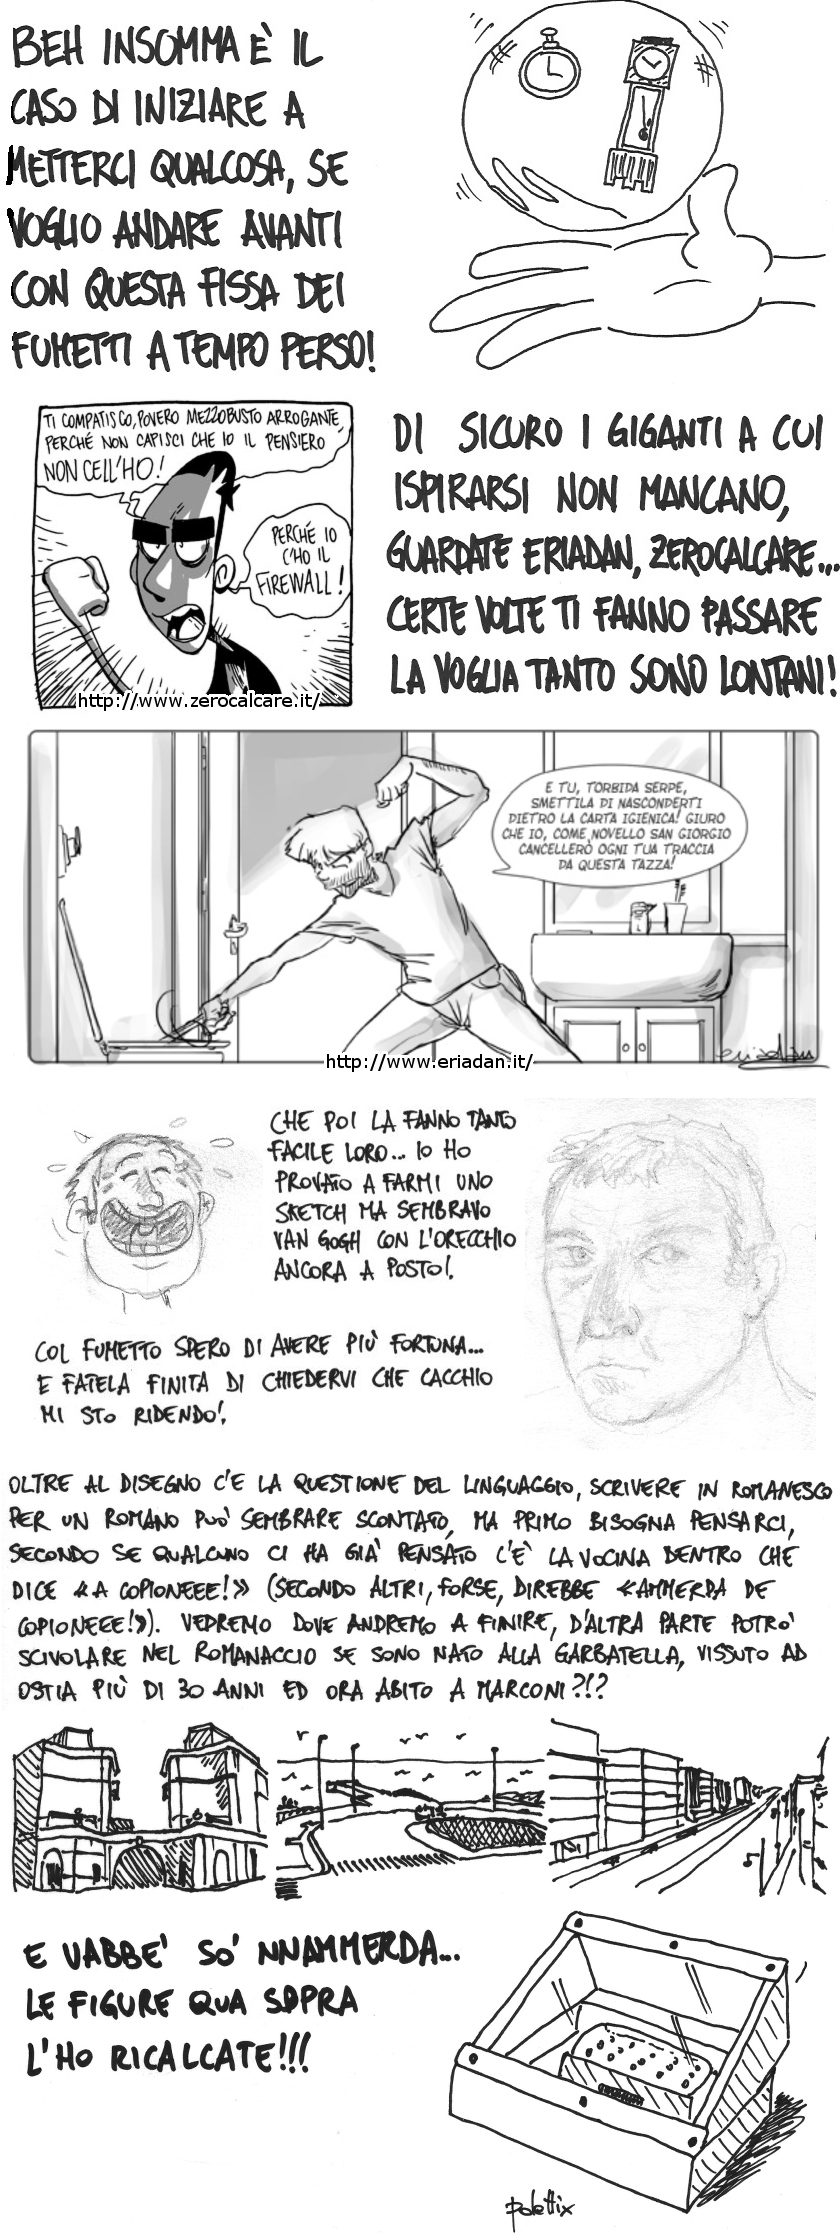 BEH INSOMMA È IL
CASO DI INIZIARE A
METTERCI QUALCOSA, SE
VOGLIO ANDARE AVANTI
CON QUESTA FISSA DEI
FUMETTI A TEMPO PERSO!
TI COMPATISCO, POVERO MEZZOBUSTO ARROGANTE,
PERCHÉ NON CAPISCI CHE IO IL PENSIERO
NON CELL'HO!
PERCHÉ IO
C'HO IL
FIREWALL!
http://www.zerocalcare.it/
DI SICURO I GIGANTI A CUI
ISPIRARSI NON MANCANO,
GUARDATE ERIADAN, ZEROCALCARE...
CERTE VOLTE TI FANNO PASSARE
LA VOGLIA TANTO SONO LONTANI!
E TU, TORBIDA SERPE,
SMETTILA DI NASCONDERTI
DIETRO LA CARTA IGIENICA! GIURO
CHE IO, COME NOVELLO SAN GIORGIO
CANCELLERÒ OGNI TUA TRACCIA
DA QUESTA TAZZA!
eriadan
http://www.eriadan.it/
CHE POI LA FANNO TANTO
FACILE LORO... IO HO
PROVATO A FARMI UNO
SKETCH MA SEMBRAVO
VAN GOGH CON L'ORECCHIO
ANCORA A POSTO!
COL FUMETTO SPERO DI AVERE PIÙ FORTUNA...
E FATELA FINITA DI CHIEDERVI CHE CACCHIO
MI STO RIDENDO!
OLTRE AL DISEGNO C'E LA QUESTIONE DEL LINGUAGGIO, SCRIVERE IN ROMANESCO
PER UN ROMANO PUO' SEMBRARE SCONTATO, MA PRIMO BISOGNA PENSARCI,
SECONDO SE QUALCUNO CI HA GIA' PENSATO C'E' LA VOCINA DENTRO CHE
DICE «A COPIONEEE!» (SECONDO ALTRI, FORSE, DIREBBE «AMMERDA DE
COPIONEEE!»). VEDREMO DOVE ANDREMO A FINIRE, D'ALTRA PARTE POTRO'
SCIVOLARE NEL ROMANACCIO SE SONO NATO ALLA GARBATELLA, VISSUTO AD
OSTIA PIÙ DI 30 ANNI ED ORA ABITO A MARCONI?!?
E VABBE' SO' NNAMMERDA...
LE FIGURE QUA SOPRA
L'HO RICALCATE!!!
polettix